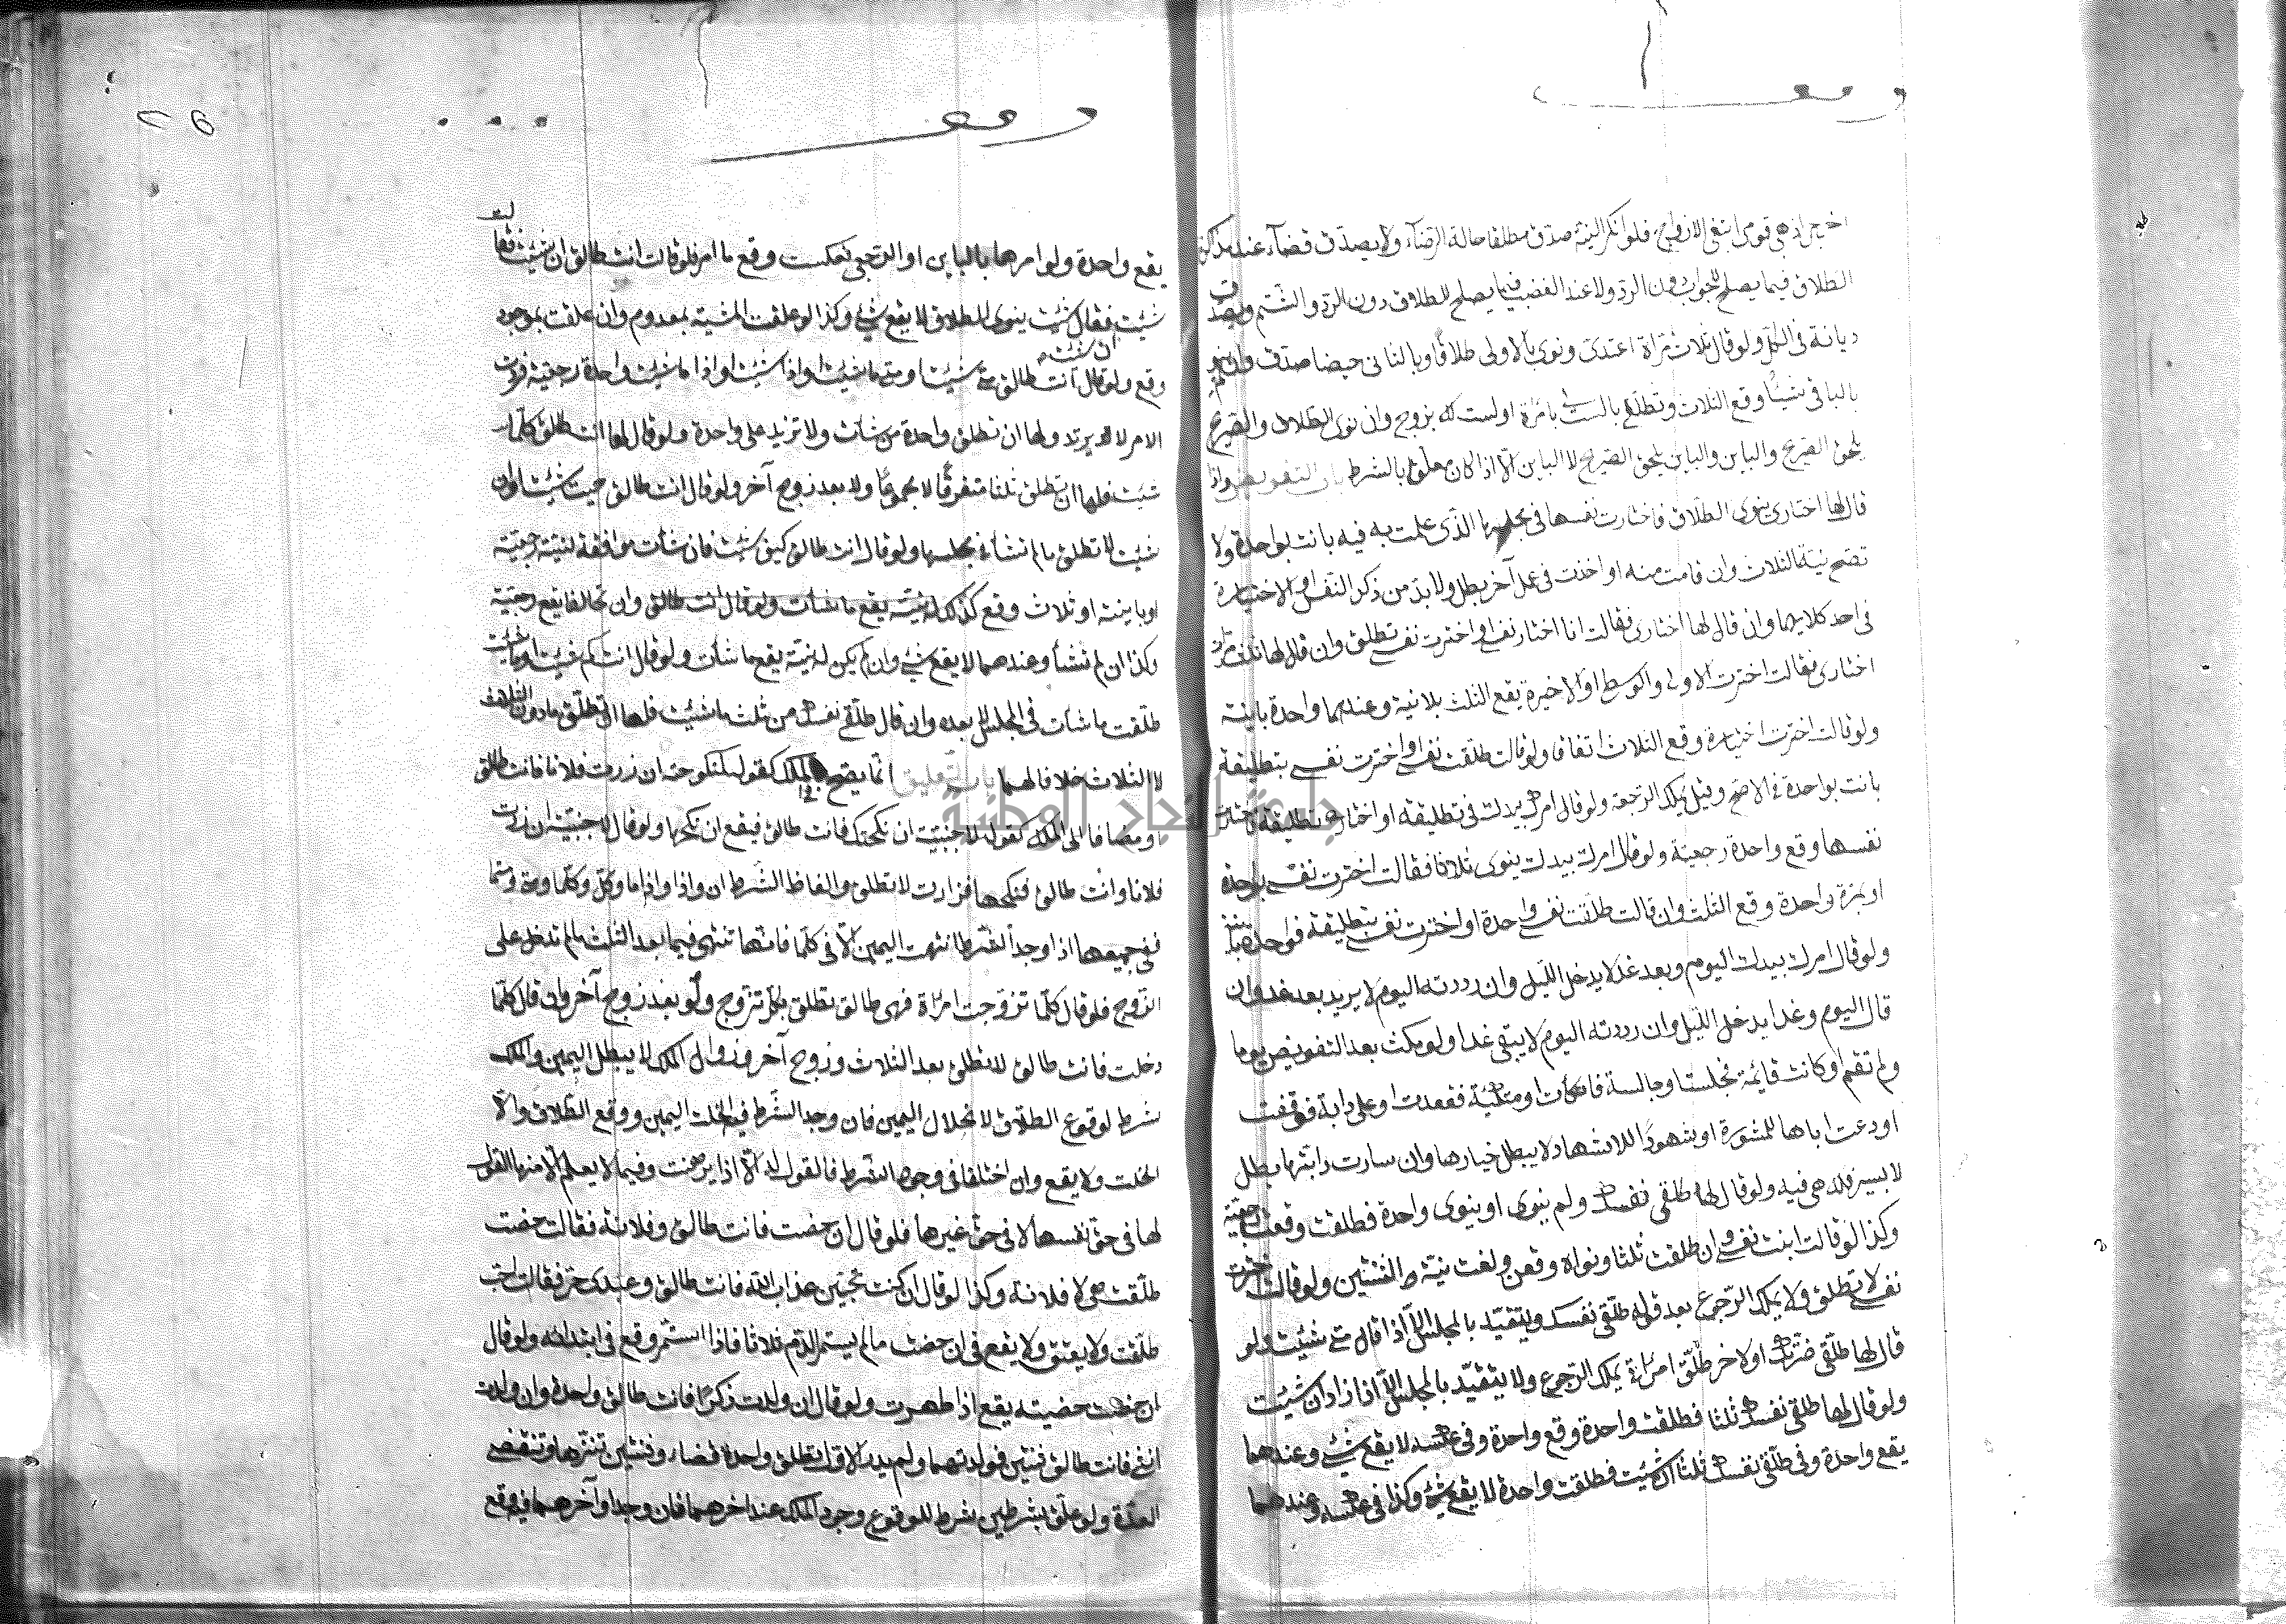 وقف
اخرجى اذهبى قومى ابتغى الازواج فلو انكر النية صدق مطلقا حالة الرضاء ولا يصدق قضاء عند مذاكرة
الطلاق فيما يصلح للجواب دون الرد ولا عند الغضب فيما يصلح للطلاق دون الرد والشتم ويصدق
ديانة فى الكل ولو قال ثلاث مراة اعتدى ونوى بالاولى طلاقا وبالثانى حيضا صدق وان لم ينو
بالباقى شيئا وقع الثلاث وتطلق بلست لى بامراة او لست لك بزوج وان نوى الطلاق والصريح
يلحق الصريح والباين والباين يلحق الصريح لا الباين الا اذا كان معلقا بالشرط باب التفويض واذا
قال لها اختارى ينوى الطلاق فاختارت نفسها فى مجلسها الذى علمت به فيه بانت بواحدة ولا
تصح نية الثلاث وان قامت منه او اخذت فى عمل آخر بطل ولا بد من ذكر النفس او الاختيارة
فى احد كلاميهما وان قال لها اختارى فقالت انا اختار نفسى او اخترت نفسى تطلق وان قال لها ثلث مرات
اختارى فقالت اخترت الاولى والوسطى او الاخيرة يقع الثلث بلا نية وعندهما واحدة باينة
ولو قالت اخترت اختيارة وقع الثلاث اتفاقا ولو قالت طلقت نفسى او اخترت نفسى بتطليقة
بانت بواحدة فى الاصح وقيل يملك الرجعة ولو قال امرك بيدك فى تطليقة او اختارى تطليقة فاختارت
نفسها وقع واحدة رجعية ولو قال امرك بيدك ينوى ثلاثا فقالت اخترت نفسى بواحدة
او بمرة واحدة وقع الثلث وان قالت طلقت نفسى واحدة او اخترت نفسى بتطليقة فواحدة باينة
ولو قال امرك بيدك اليوم وبعد غد لا يدخل الليل وان ردته اليوم لا يرتد بعد غد وان
قال اليوم وغدا يدخل الليل وان ردته اليوم لا يبقى غدا ولو مكثت بعد التفويض يوما
ولم تقم او كانت قايمة فجلست او جالسة فاتكأت او متكئة فقعدت او على دابة فوقفت
او دعت اباها للمشورة او شهودا للاشهاد لا يبطل خيارها وان سارت دابتها بطل
لا بسير فلك هى فيه ولو قال لها طلقى نفسك ولم ينوى او ينوى واحدة فطلقت وقعت رجعية
وكذا لو قالت ابنت نفسى وان طلقت ثلثا ونواه وقعن ولغت نية الثنتين ولو قالت اخترت
نفسى لا تطلق ولا يملك الرجوع بعد قوله طلقى نفسك ويتقيد بالمجلس الا اذا قال متى شئت ولو
قال لها طلقى ضرتك او لاخر طلق امرأتى يملك الرجوع ولا يتقيد بالمجلس الا اذا زاد ان شئت
ولو قال لها طلقى نفسك ثلثا فطلقت واحدة وقع واحدة وفى عكسه لا يقع شئ وعندهما
يقع واحدة وفى طلقى نفسك ثلثا ان شئت فطلقت واحدة لا يقع شئ وكذا فى عكسه وعندهما
وقف
٢٥
يقع واحدة ولو امرها بالباين او الرجعى فعكست وقع ما امر فلو قالت انت طالق ان شئت فقالت
شئت فقال شئت ينوى الطلاق لا يقع شئ وكذا لو علقت المشية بمعدوم وان علقت بموجود
وقع ولو قال انت طالق متى شئت او متى ما شئت او اذا شئت او اذا ما شئت واحدة رجعية فردت
ان شئت
الامر لا يرتد ولها ان تطلق واحدة متى شأت ولا تزيد على واحدة ولو قال لها انت طالق كلما
شئت فلها ان تطلق ثلثا متفرقا لا مجموعا ولا بعد زوج آخر ولو قال انت طالق حيث شئت او اين
شئت لا تطلق ما لم تشأ فى مجلسها ولو قال انت طالق كيف شئت فان شأت موافقة لنيته رجعية
او باينة او ثلاث وقع كذلك وان تخالفا يقع رجعية
وكذا ان لم تشأ وعندهما لا يقع شئ وان لم يكن له نية يقع ما شأت ولو قال انت كم شئت او ما شئت
طلقت ما شأت فى المجلس لا بعده وان قال طلقى نفسك من ثلث ما شئت فلها ان تطلق ما دون الثلاث
لا الثلاث خلافا لهما باب التعليق انما يصح فى الملك كقوله لمنكوحته ان زرت فلانا فانت طالق
او مضافا الى الملك كقوله لاجنبية ان نكحتك فانت طالق فيقع ان نكحها ولو قال لاجنبية ان زرت
فلانا وانت طالق فنكحها فزارت لا تطلق والفاظ الشرط ان واذا واذا ما وكل وكلما ومتى ومتما
ففى جميعها اذا وجد الشرط انتهت اليمين الا فى كلما فانها تنتهى فيما بعد الثلث ما لم تدخل على
التزوج فلو قال كلما تزوجت امرأة فهى طالق تطلق بكل تزوج ولو بعد زوج آخر وان قال كلما
دخلت فانت طالق لا تطلق بعد الثلاث وزوج آخر وزوال الملك لا يبطل اليمين والملك
شرط لوقوع الطلاق لا لانحلال اليمين فان وجد الشرط فيه انحلت اليمين ووقع الطلاق والا
انحلت ولا يقع وان اختلفا فى وجود الشرط فالقول له الا اذا برهنت وفيما لا يعلم الا منها القول
لها فى حق نفسها لا فى حق غيرها فلو قال ان حضت فانت طالق وفلانة فقالت حضت
طلقت هى لا فلانة وكذا لو قال ان كنت تحبين عذاب الله فانت طالق وعبدى حر فقالت احب
طلقت ولا يعتق ولا يقع فى ان حضت ما لم يستمر الدم ثلاثا فاذا استمر وقع فى ابتدائه ولو قال
ان حضت حضية يقع اذا طهرت ولو قال ان ولدت ذكرا فانت طالق واحدة وان ولدت
انثى فانت طالق ثنتين فولدتهما ولم يدر الاول تطلق واحدة قضاء وثنتين تنزها وتنقضى
العدة ولو علق بشرطين شرط للوقوع وجود الملك عند اخرهما فان وجدا او آخرهما فيه وقع
جامعة النجاح الوطنية